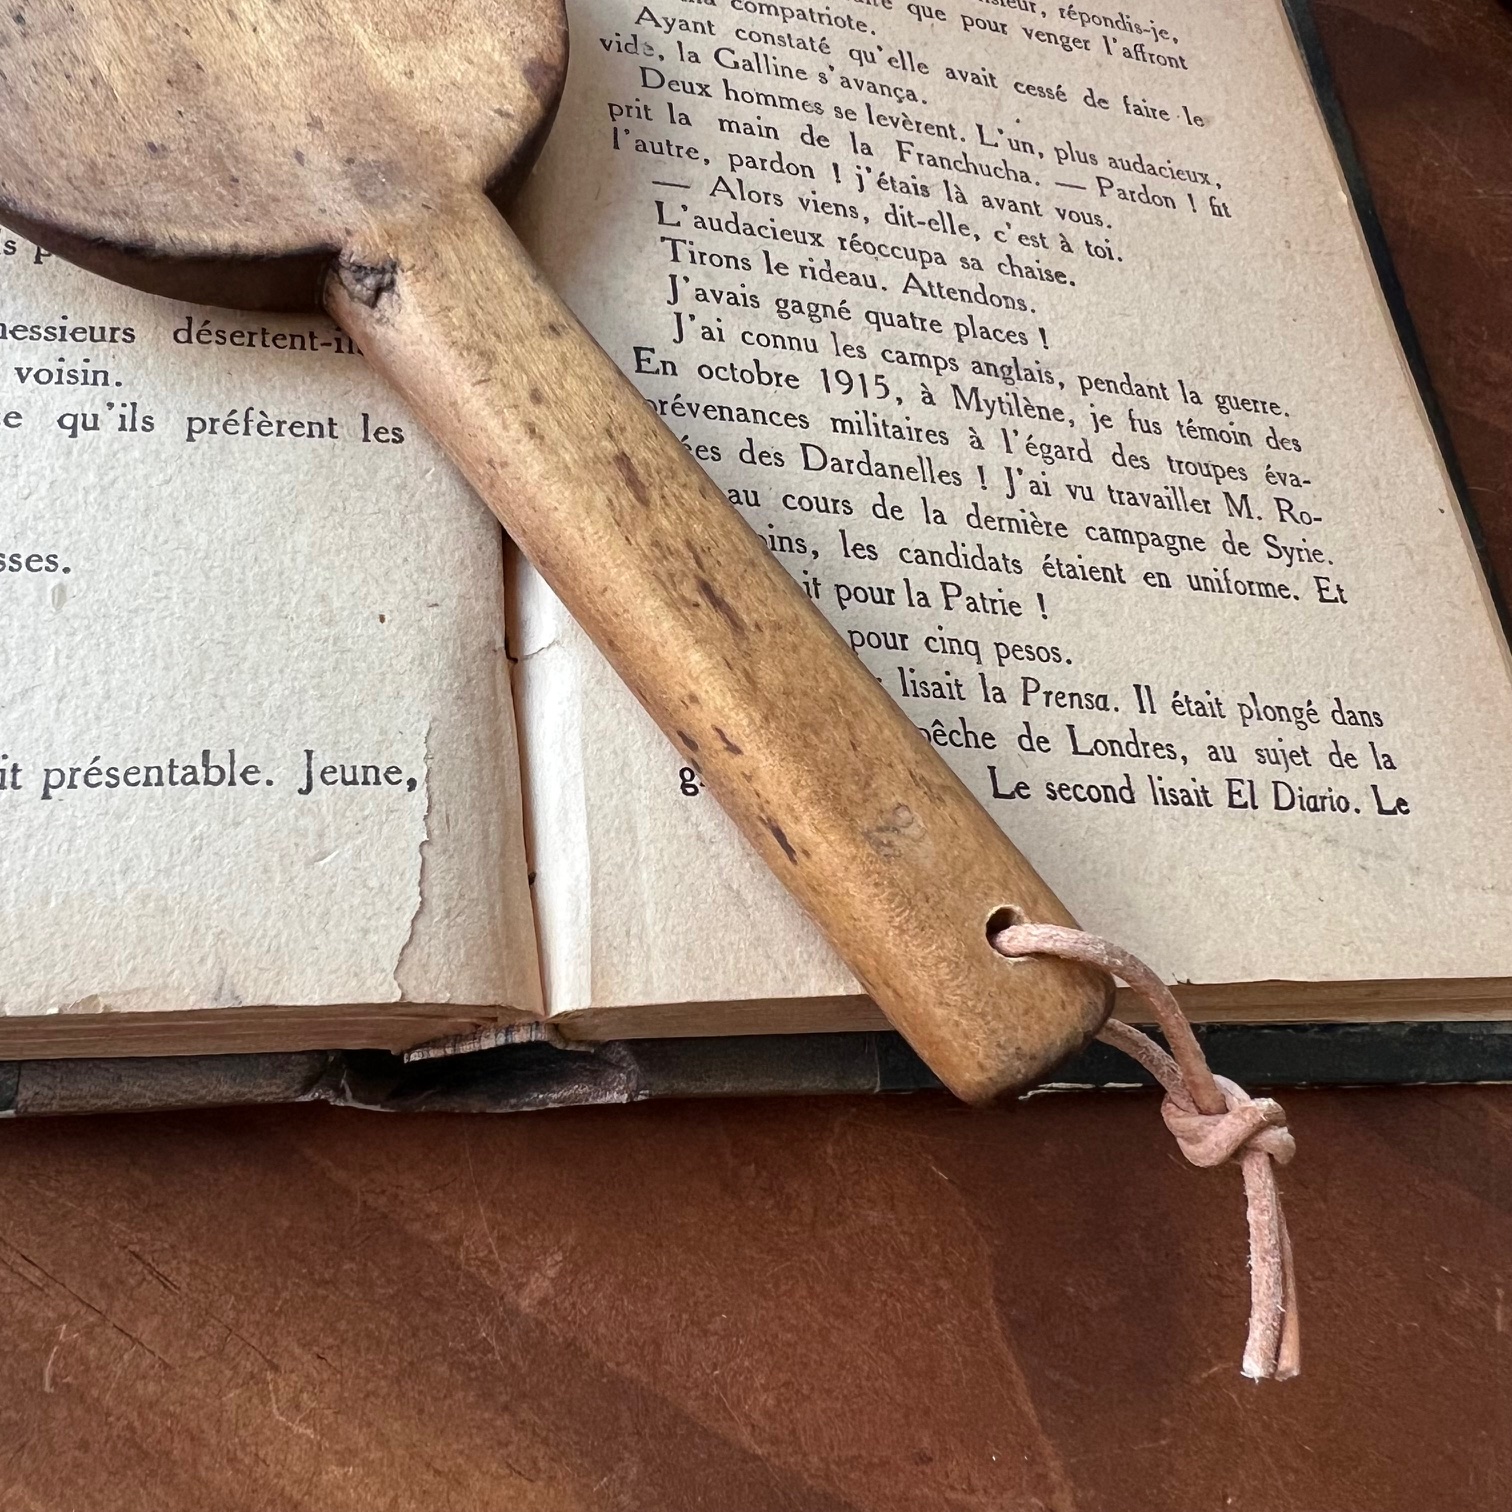 messieurs désertent-ils
voisin.
qu'ils préfèrent les
it présentable. Jeune,
que pour venger l'affront
répondis-je,
compatriote.
Ayant constaté qu'elle avait cessé de faire le
vide, la Galline s'avança.
Deux hommes se levèrent. L'un, plus audacieux,
prit la main de la Franchucha. — Pardon ! fit
l'autre, pardon ! j'étais là avant vous.
— Alors viens, dit-elle, c'est à toi.
L'audacieux réoccupa sa chaise.
Tirons le rideau. Attendons.
J'avais gagné quatre places !
J'ai connu les camps anglais, pendant la guerre.
En octobre 1915, à Mytilène, je fus témoin des
prévenances militaires à l'égard des troupes éva-
ées des Dardanelles ! J'ai vu travailler M. Ro-
au cours de la dernière campagne de Syrie.
oins, les candidats étaient en uniforme. Et
it pour la Patrie !
pour cinq pesos.
lisait la Prensa. Il était plongé dans
pêche de Londres, au sujet de la
Le second lisait El Diario. Le